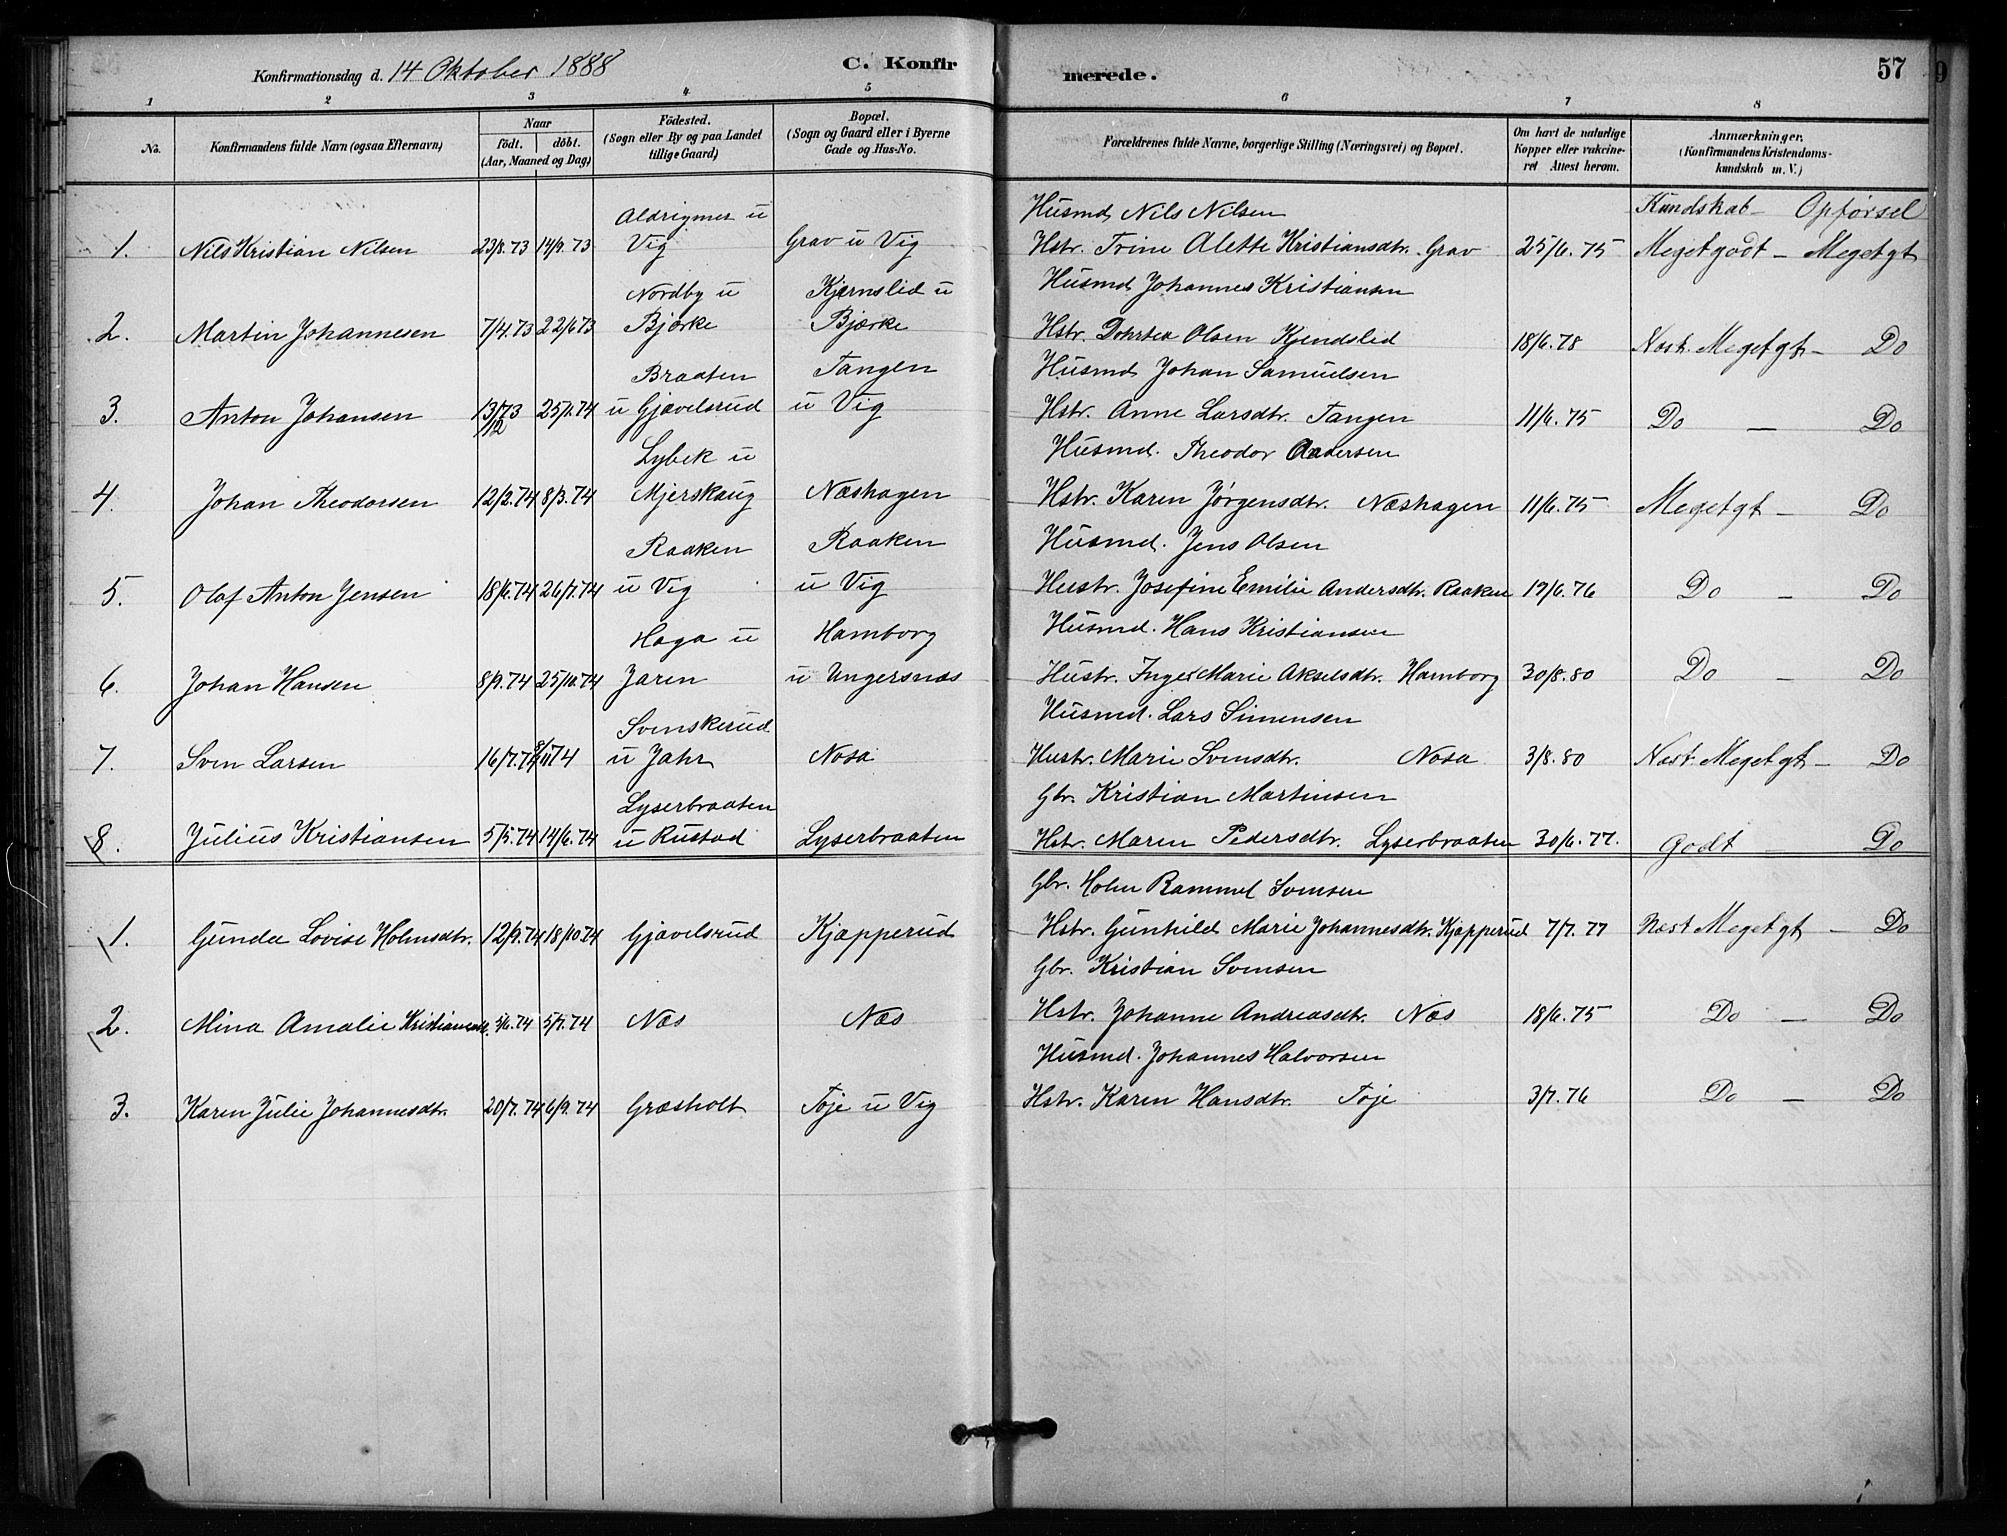 Konfirmationsdag d. 14 Oktober 1888 C. Konfirmerede. 57
1 2 3 4 5 6 7 8
No. Konfirmandens fulde Navn (ogsaa Efternavn) Naar födt. döbt. (Aar, Maaned og Dag) Födested. (Sogn eller By og paa Landet tillige Gaard) Bopæl. (Sogn og Gaard eller i Byerne Gade og Hus-No. Forældrenes fulde Navne, borgerlige Stilling (Næringsvei) og Bopæl. Om havt de naturlige Kopper eller vakcineret Attest herom. Anmærkninger. (Konfirmandens Kristendomskundskab m. V.)
Aldrigmer u Husmd Nils Nilsen Kundskab – Opførsel
1. Nils Kristian Nilsen 23/8.73 14/9.73 Vig Grav u Vig Hstr. Trine Alette Kristiansdtr. Grav 25/6.75 Megetgodt – Megetgt
Nordby u Kjernslid u Husmd Johannes Kristiansen
2. Martin Johannesen 7/4.73 22/6 73 Bjørke Bjærke Hstr. Dorthea Olsen Kjendslid 18/6.78 Næst. Megetgt – Do
Braaten Tangen Husmd Johan Samuelsen
3. Anton Johansen 13/12 73 25/1.74 u Gjævelsrud u Vig Hstr. Anne Larsdtr. Tangen 11/6.75 Do – Do
Lybek u Husmd. Theodor Andersen
4. Johan Theodorsen 12/2.74 8/3.74 Mjerskaug Næshagen Hstr. Karen Jørgensdtr. Næshagen 11/6.75 Megetgt – Do
Raaken Raaken Husmd. Jens Olsen
5. Olaf Anton Jensen 18/6.74 26/7.74 u Vig u Vig Hustr. Josefine Emilie Andersdtr. Raaken 19/6.76 Do – Do
Haga u Hamborg Husmd. Hans Kristiansen
6. Johan Hansen 8/9.74 25/10.74 Jaren u Ungersnæs Hustr. Inger Marie Akselsdtr. Hamborg 30/8.80 Do – Do
Svenskerud Husmd. Lars Simensen
7. Sven Larsen 16/7.74 8/11 74 u Jahr Nosa Hustr. Marie Svensdtr. Nosa 3/8.80 Næst. Megetgt – Do
Lyserbraaten Gbr. Kristian Martinsen
8. Julius Kristiansen 5/5.74 14/6.74 u Rustad Lyserbraaten Hstr. Maren Pedersdtr. Lyserbraaten 30/6.77. Godt – Do
Gbr. Holm Rammel Svensen
1. Gunda Lovise Holmsdtr. 12/9.74 18/10.74 Gjævelsrud Kjapperud Hstr. Gunhild Marie Johannesdtr. Kjapperud 7/7.77 Næst Megetgt – Do
Gbr. Kristian Svensen
2. Mina Amalie Kristiansdtr. 5/6.74 5/7.74 Næs Næs Hstr. Johanne Andreasdtr. Næs 18/6.75 Do – Do
Husmd. Johannes Halvorsen
3. Karen Julie Johannesdtr. 20/7.74 6/9.74 Græsholt Tøje u Vig Hstr. Karen Hansdtr. Tøje 3/7.76 Do – Do